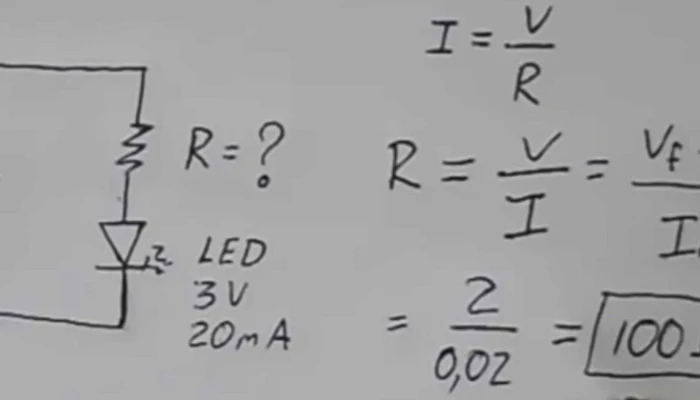 I = V/R
R = ?
R = V/I = Vf
LED
3V
20mA
= 2/0,02 = 100